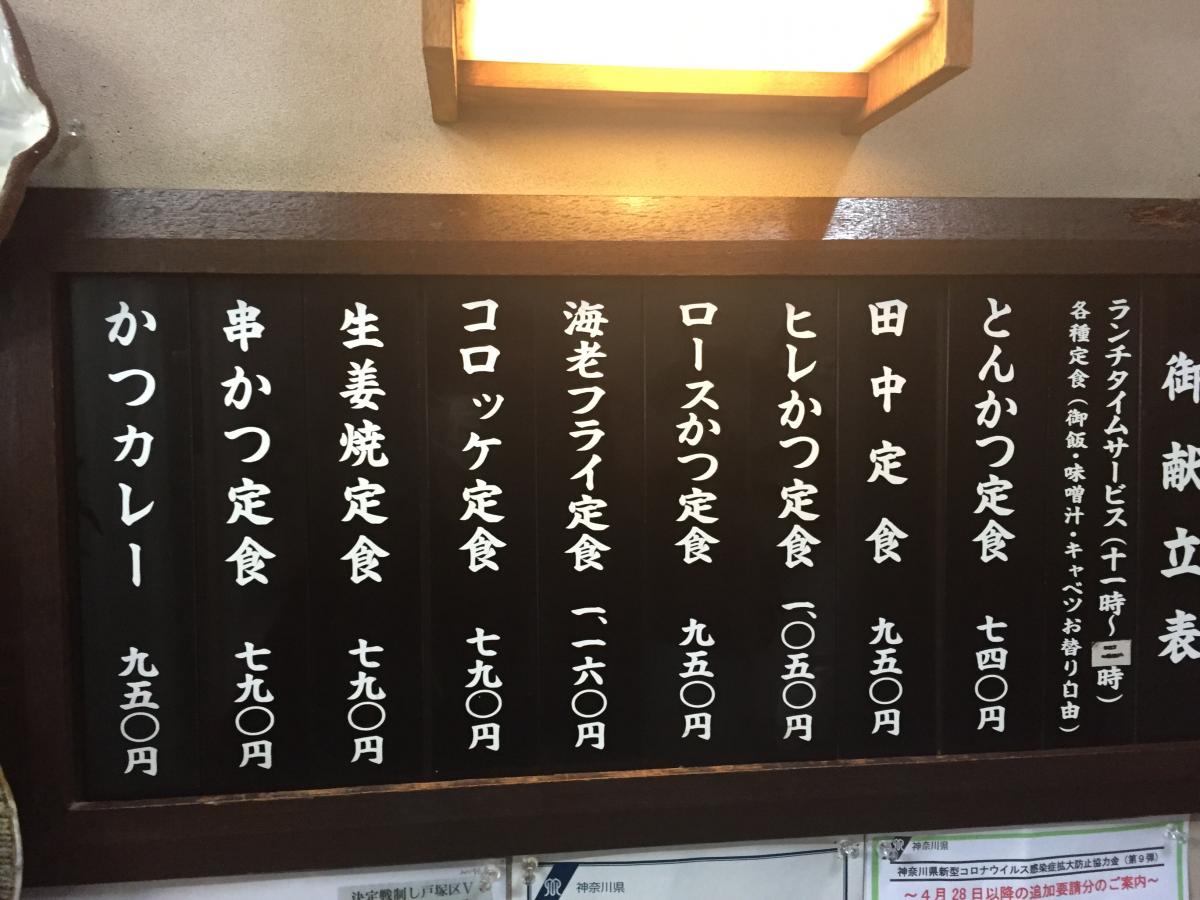 御献立表
ランチタイムサービス（十一時〜二時）
各種定食（御飯・味噌汁・キャベツお替り自由）
とんかつ定食 七四〇円
田中定食 九五〇円
ヒレかつ定食 一、〇五〇円
ロースかつ定食 九五〇円
海老フライ定食 一、一六〇円
コロッケ定食 七九〇円
生姜焼定食 七九〇円
串かつ定食 七九〇円
かつカレー 九五〇円
決定戦制し戸塚区V
神奈川県
神奈川県
神奈川県新型コロナウイルス感染症拡大防止協力金（第９弾）
〜４月２８日以降の追加要請分のご案内〜